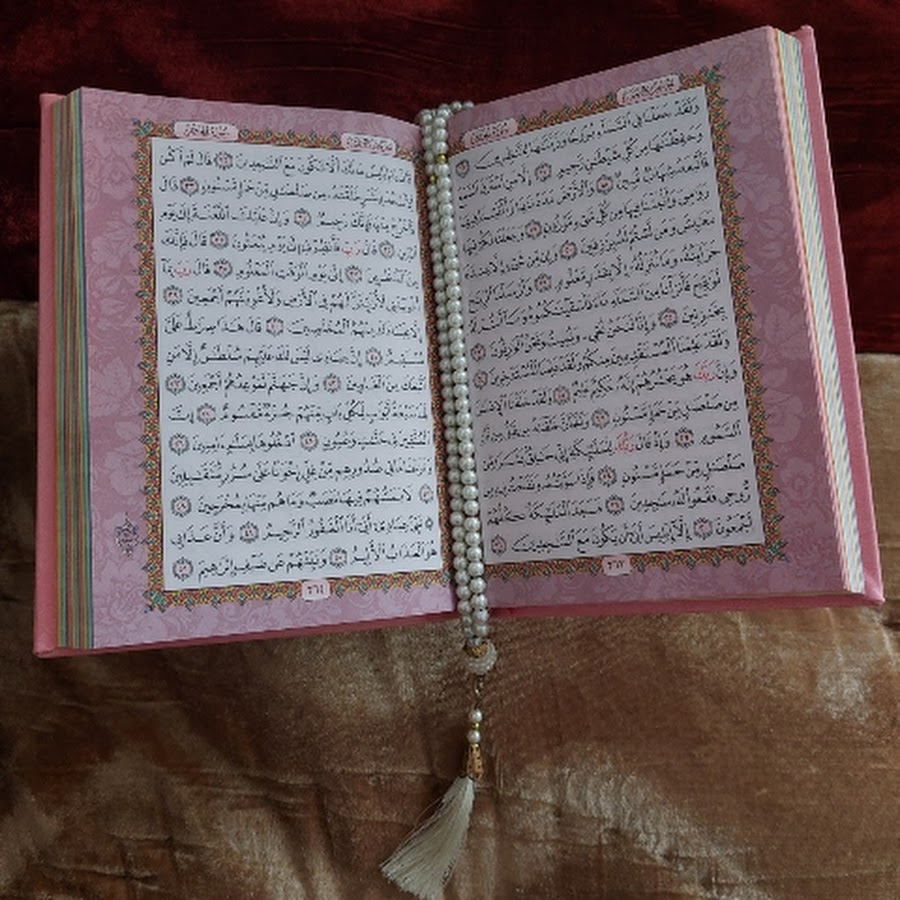 الجزء الرابع عشر
سورة الحجر
وَلَقَدْ جَعَلْنَا فِي ٱلسَّمَآءِ بُرُوجًا وَزَيَّنَّٰهَا لِلنَّٰظِرِينَ ١٦
وَحَفِظْنَٰهَا مِن كُلِّ شَيْطَٰنٍ رَّجِيمٍ ١٧ إِلَّا مَنِ ٱسْتَرَقَ ٱلسَّمْعَ
فَأَتْبَعَهُۥ شِهَابٌ مُّبِينٌ ١٨ وَٱلْأَرْضَ مَدَدْنَٰهَا وَأَلْقَيْنَا فِيهَا
رَوَٰسِيَ وَأَنۢبَتْنَا فِيهَا مِن كُلِّ شَيْءٍ مَّوْزُونٍ ١٩ وَجَعَلْنَا لَكُمْ فِيهَا
مَعَٰيِشَ وَمَن لَّسْتُمْ لَهُۥ بِرَٰزِقِينَ ٢٠ وَإِن مِّن شَيْءٍ إِلَّا عِندَنَا
خَزَآئِنُهُۥ وَمَا نُنَزِّلُهُۥٓ إِلَّا بِقَدَرٍ مَّعْلُومٍ ٢١ وَأَرْسَلْنَا ٱلرِّيَٰحَ
لَوَٰقِحَ فَأَنزَلْنَا مِنَ ٱلسَّمَآءِ مَآءً فَأَسْقَيْنَٰكُمُوهُ وَمَآ أَنتُمْ لَهُۥ
بِخَٰزِنِينَ ٢٢ وَإِنَّا لَنَحْنُ نُحْيِۦ وَنُمِيتُ وَنَحْنُ ٱلْوَٰرِثُونَ ٢٣
وَلَقَدْ عَلِمْنَا ٱلْمُسْتَقْدِمِينَ مِنكُمْ وَلَقَدْ عَلِمْنَا ٱلْمُسْتَـْٔخِرِينَ ٢٤
وَإِنَّ رَبَّكَ هُوَ يَحْشُرُهُمْ إِنَّهُۥ حَكِيمٌ عَلِيمٌ ٢٥ وَلَقَدْ خَلَقْنَا ٱلْإِنسَٰنَ
مِن صَلْصَٰلٍ مِّنْ حَمَإٍ مَّسْنُونٍ ٢٦ وَٱلْجَآنَّ خَلَقْنَٰهُ مِن قَبْلُ مِن نَّارِ
ٱلسَّمُومِ ٢٧ وَإِذْ قَالَ رَبُّكَ لِلْمَلَٰٓئِكَةِ إِنِّي خَٰلِقٌۢ بَشَرًا مِّن
صَلْصَٰلٍ مِّنْ حَمَإٍ مَّسْنُونٍ ٢٨ فَإِذَا سَوَّيْتُهُۥ وَنَفَخْتُ فِيهِ مِن
رُّوحِي فَقَعُوا۟ لَهُۥ سَٰجِدِينَ ٢٩ فَسَجَدَ ٱلْمَلَٰٓئِكَةُ كُلُّهُمْ
أَجْمَعُونَ ٣٠ إِلَّآ إِبْلِيسَ أَبَىٰٓ أَن يَكُونَ مَعَ ٱلسَّٰجِدِينَ ٣١
٢٦٣
الجزء الرابع عشر
سورة الحجر
قَالَ يَٰٓإِبْلِيسُ مَا لَكَ أَلَّا تَكُونَ مَعَ ٱلسَّٰجِدِينَ ٣٢ قَالَ لَمْ أَكُن
لِّأَسْجُدَ لِبَشَرٍ خَلَقْتَهُۥ مِن صَلْصَٰلٍ مِّنْ حَمَإٍ مَّسْنُونٍ ٣٣ قَالَ
فَٱخْرُجْ مِنْهَا فَإِنَّكَ رَجِيمٌ ٣٤ وَإِنَّ عَلَيْكَ ٱللَّعْنَةَ إِلَىٰ يَوْمِ
ٱلدِّينِ ٣٥ قَالَ رَبِّ فَأَنظِرْنِيٓ إِلَىٰ يَوْمِ يُبْعَثُونَ ٣٦ قَالَ فَإِنَّكَ
مِنَ ٱلْمُنظَرِينَ ٣٧ إِلَىٰ يَوْمِ ٱلْوَقْتِ ٱلْمَعْلُومِ ٣٨ قَالَ رَبِّ بِمَآ
أَغْوَيْتَنِي لَأُزَيِّنَنَّ لَهُمْ فِي ٱلْأَرْضِ وَلَأُغْوِيَنَّهُمْ أَجْمَعِينَ ٣٩
إِلَّا عِبَادَكَ مِنْهُمُ ٱلْمُخْلَصِينَ ٤٠ قَالَ هَٰذَا صِرَٰطٌ عَلَيَّ
مُسْتَقِيمٌ ٤١ إِنَّ عِبَادِي لَيْسَ لَكَ عَلَيْهِمْ سُلْطَٰنٌ إِلَّا مَنِ
ٱتَّبَعَكَ مِنَ ٱلْغَاوِينَ ٤٢ وَإِنَّ جَهَنَّمَ لَمَوْعِدُهُمْ أَجْمَعِينَ ٤٣
لَهَا سَبْعَةُ أَبْوَٰبٍ لِّكُلِّ بَابٍ مِّنْهُمْ جُزْءٌ مَّقْسُومٌ ٤٤ إِنَّ
ٱلْمُتَّقِينَ فِي جَنَّٰتٍ وَعُيُونٍ ٤٥ ٱدْخُلُوهَا بِسَلَٰمٍ ءَامِنِينَ ٤٦
وَنَزَعْنَا مَا فِي صُدُورِهِم مِّنْ غِلٍّ إِخْوَٰنًا عَلَىٰ سُرُرٍ مُّتَقَٰبِلِينَ
٤٧ لَا يَمَسُّهُمْ فِيهَا نَصَبٌ وَمَا هُم مِّنْهَا بِمُخْرَجِينَ ٤٨
۞ نَبِّئْ عِبَادِيٓ أَنِّيٓ أَنَا ٱلْغَفُورُ ٱلرَّحِيمُ ٤٩ وَأَنَّ عَذَابِي
هُوَ ٱلْعَذَابُ ٱلْأَلِيمُ ٥٠ وَنَبِّئْهُمْ عَن ضَيْفِ إِبْرَٰهِيمَ ٥١
٢٦٤